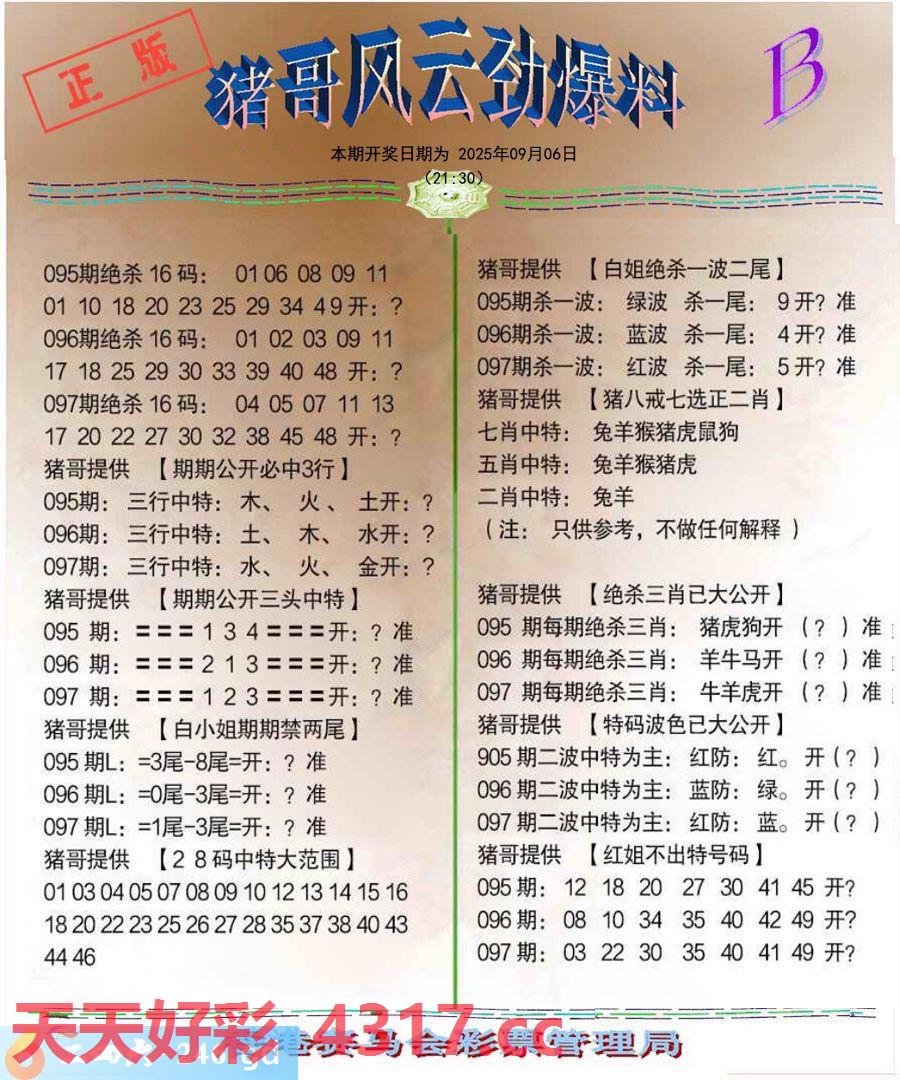 正版
猪哥风云劲爆料
B
本期开奖日期为 2025年09月06日
(21:30)
095期绝杀16码: 01 06 08 09 11
01 10 18 20 23 25 29 34 49开:?
096期绝杀16码: 01 02 03 09 11
17 18 25 29 30 33 39 40 48 开:?
097期绝杀16码: 04 05 07 11 13
17 20 22 27 30 32 38 45 48 开:?
猪哥提供 【期期公开必中3行】
095期: 三行中特: 木、 火、 土开:?
096期: 三行中特: 土、 木、 水开:?
097期: 三行中特: 水、 火、 金开:?
猪哥提供 【期期公开三头中特】
095 期: === 1 3 4 ===开:? 准
096 期: === 2 1 3 ===开:? 准
097 期: === 1 2 3 ===开:? 准
猪哥提供 【白小姐期期禁两尾】
095期L: =3尾-8尾=开:? 准
096期L: =0尾-3尾=开:? 准
097期L: =1尾-3尾=开:? 准
猪哥提供 【28码中特大范围】
01 03 04 05 07 08 09 10 12 13 14 15 16
18 20 22 23 25 26 27 28 35 37 38 40 43
44 46
猪哥提供 【白姐绝杀一波二尾】
095期杀一波: 绿波 杀一尾: 9开? 准
096期杀一波: 蓝波 杀一尾: 4开? 准
097期杀一波: 红波 杀一尾: 5开? 准
猪哥提供 【猪八戒七选正二肖】
七肖中特: 兔羊猴猪虎鼠狗
五肖中特: 兔羊猴猪虎
二肖中特: 兔羊
(注: 只供参考,不做任何解释)
猪哥提供 【绝杀三肖已大公开】
095 期每期绝杀三肖: 猪虎狗开 (?)准
096 期每期绝杀三肖: 羊牛马开 (?)准
097 期每期绝杀三肖: 牛羊虎开 (?)准
猪哥提供 【特码波色已大公开】
905期二波中特为主: 红防: 红。 开(?)
096期二波中特为主: 蓝防: 绿。 开(?)
097期二波中特为主: 红防: 蓝。 开(?)
猪哥提供 【红姐不出特号码】
095期: 12 18 20 27 30 41 45 开?
096期: 08 10 34 35 40 42 49 开?
097期: 03 22 30 35 40 41 49 开?
天天好彩 4317.cc
港赛马会彩票管理局